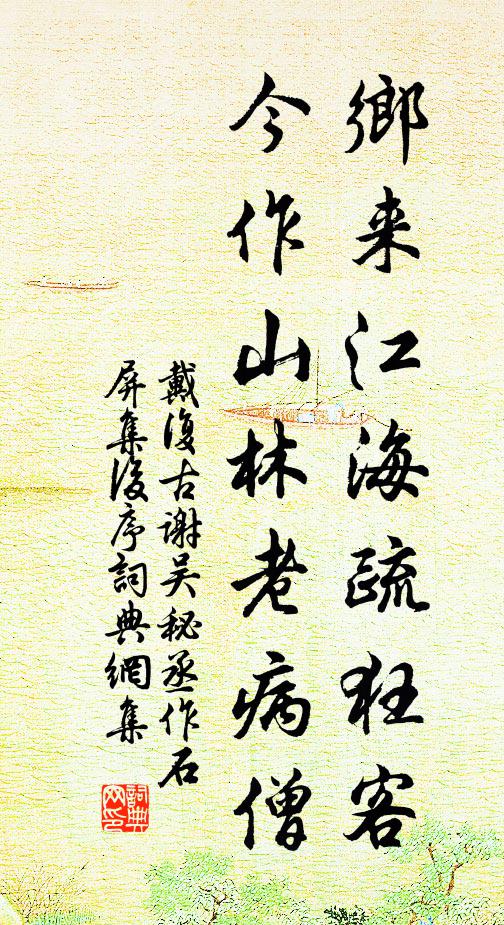 鄉来江海疏狂客
今作山林老病僧
戴復古谢吴秘丞作石
屏集後序詞典網集
詞典
网印